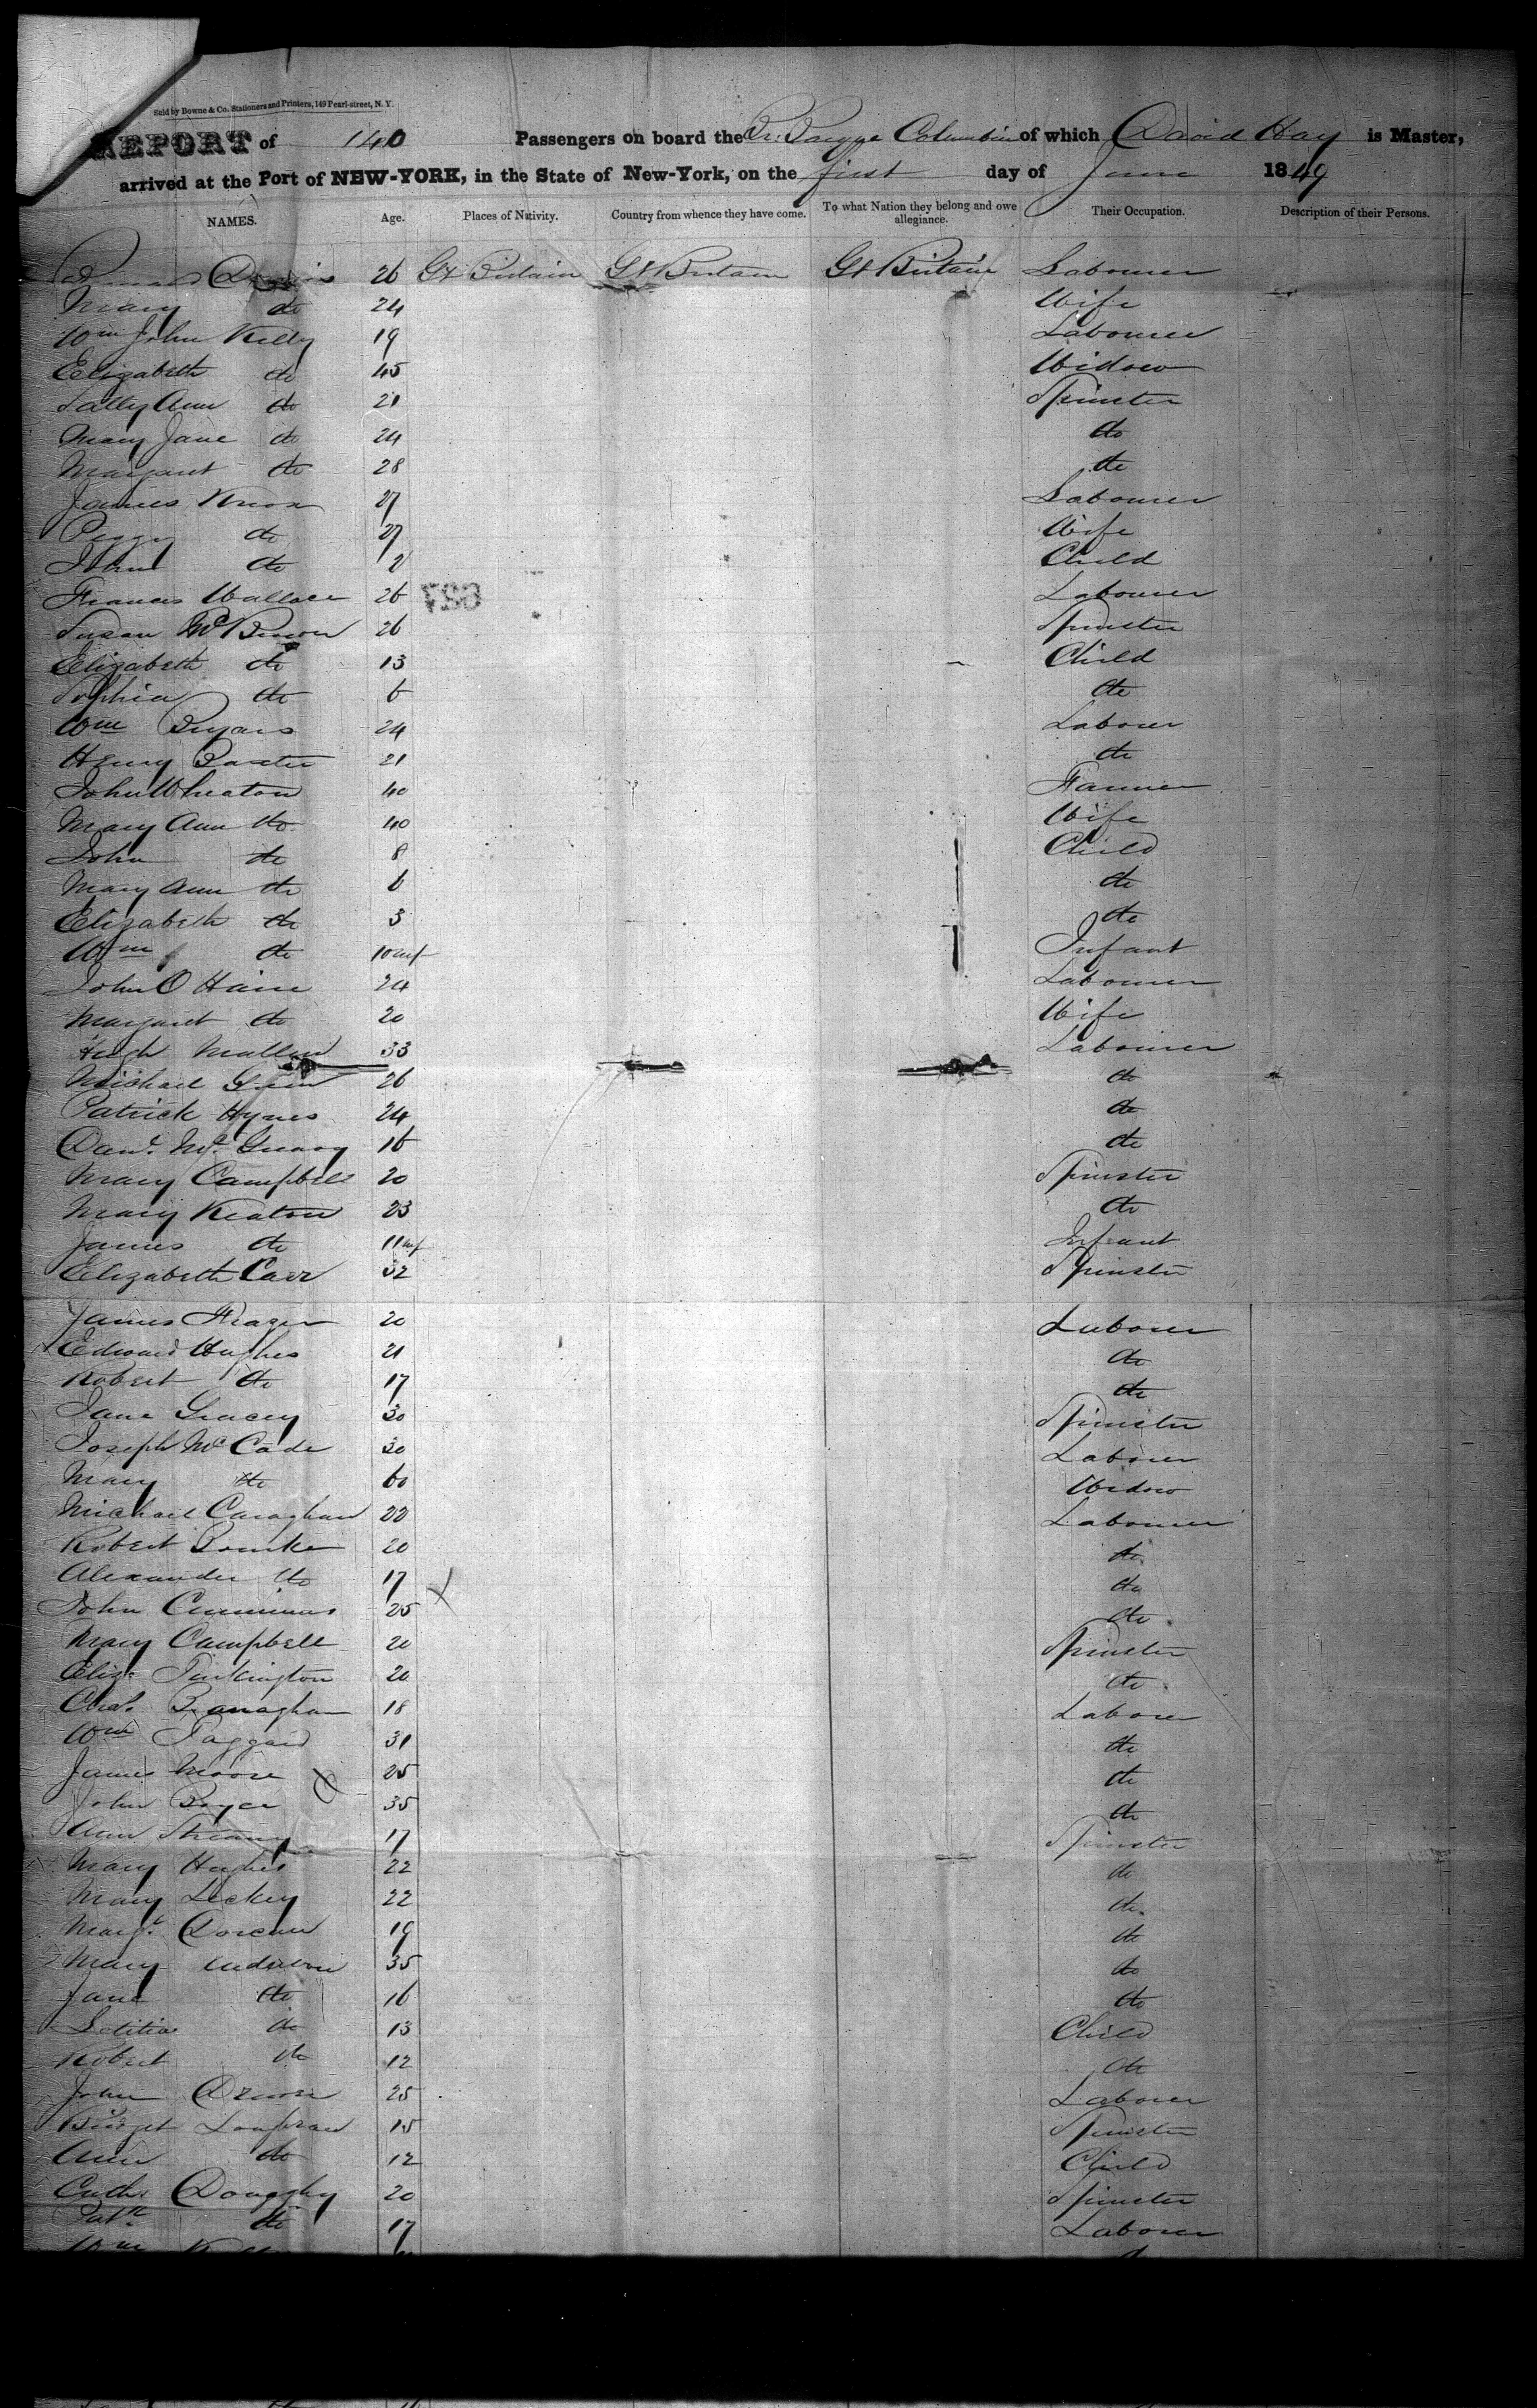 Sold by Bowne & Co. Stationers and Printers, 149 Pearl-street, N. Y.
REPORT of 140 Passengers on board the Br: Barque Columbia of which David Hay is Master,
arrived at the Port of NEW-YORK, in the State of New-York, on the first day of June 1849
NAMES. Age. Places of Nativity. Country from whence they have come. To what Nation they belong and owe allegiance. Their Occupation. Description of their Persons.
26 Gt Britain Gt Britain Gt Britain Labourer
Mary do 24 Wife
Wm John Kelly 19 Labourer
Elizabeth do 45 Widow
Sally Ann do 21 Spinster
Mary Jane do 24 do
Margaret do 28 do
James Knox 27 Labourer
Peggy do 27 Wife
John do 2 Child
Francis Wallace 26 Labourer
627
Susan 26 Spinster
Elizabeth do 13 Child
Sophia do 6 do
Wm Bryars 24 Laborer
Henry Baxter 21 do
John Wheaton 40 Farmer
Mary Ann do 40 Wife
John do 8 Child
Mary Ann do 6 do
Elizabeth do 3 do
Wm do 10 Infant
John O Hair 24 Labourer
Margaret do 20 Wife
Hugh Mallon 33 Labourer
Michael 26 do
Patrick Hynes 24 do
Danl. 16 do
Mary Campbell 20 Spinster
Mary Keaton 23 do
James do 11 Infant
Elizabeth Carr 32 Spinster
James Frazer 20 Laborer
Edward Hughes 21 do
Robert do 17 do
Jane Gracey 30 Spinster
Joseph McCade 30 Laborer
Mary do 60 Widow
Michael Caraghan 22 Labourer
Robert Bourke 20 do
Alexander do 17 do
John Cummins 25 do
Mary Campbell 20 Spinster
Eliza Turkington 20 do
Chas. Branaghan 18 Laborer
Wm Taggard 31 do
James Moore 25 do
John Boyce 35 do
Ann 17 Spinster
Mary Hughes 22 do
Mary Leckey 22 do
Margt. 19 do
Mary Anderson 35 do
Jane do 16 do
Letitia do 13 Child
Robert do 12 do
John 25 Laborer
Bridget Loughran 15 Spinster
Ann do 12 Child
Cathe Donaghy 20 Spinster
Patk do 17 Laborer
Wm